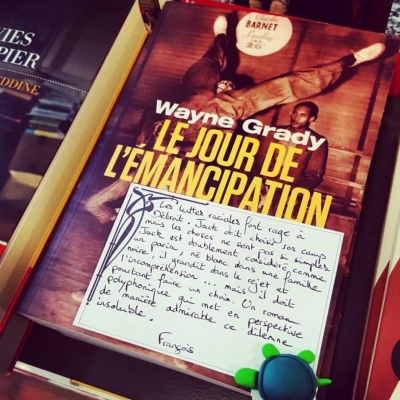 VIES
PAPIER
EDDINE
Charlie
BARNET
Sunday
26
Wayne Grady
LE JOUR DE
L'ÉMANCIPATION
Les luttes raciales font rage à
Détroit. Jack doit choisir son camp
mais les choses ne sont pas si simples.
Jack est doublement considéré comme
un paria, né blanc dans une famille
noire, il grandit dans le rejet et
l'incompréhension... mais il doit
pourtant faire un choix. Un roman
polyphonique qui met en perspective
de manière admirable ce dilemne
insoluble.
François